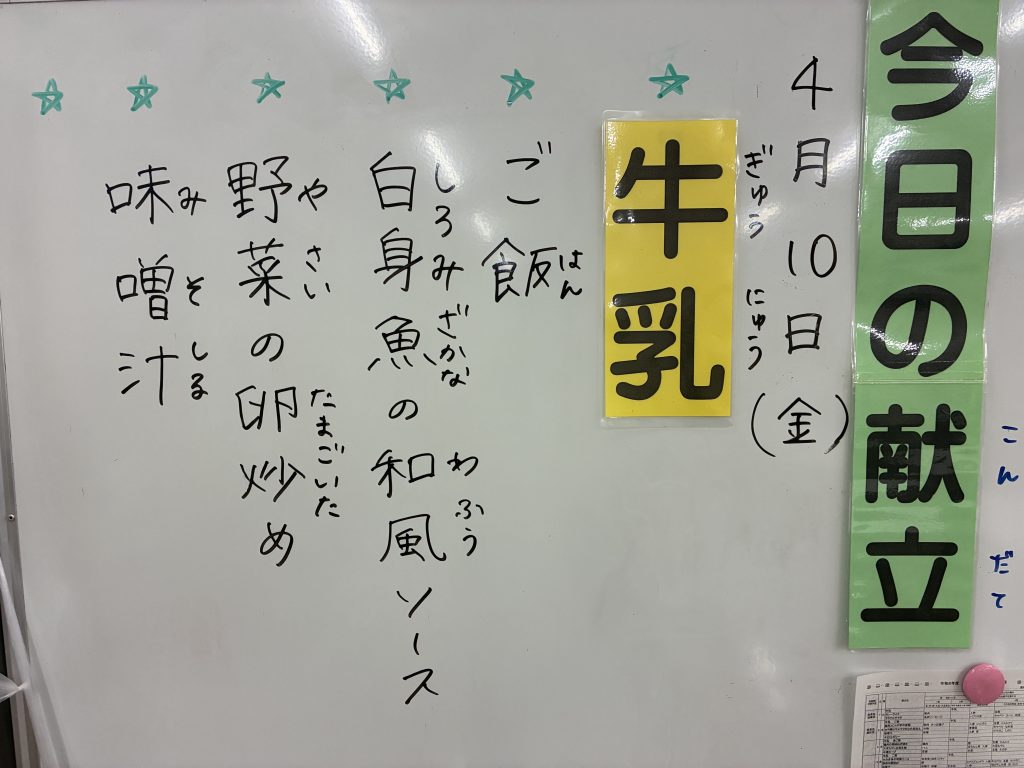 今日の献立
こんだて
4月10日(金)
牛乳
ぎゅうにゅう
ご飯
はん
白身魚の和風ソース
しろみざかな わふう
野菜の卵炒め
やさい たまごいた
味噌汁
みそしる